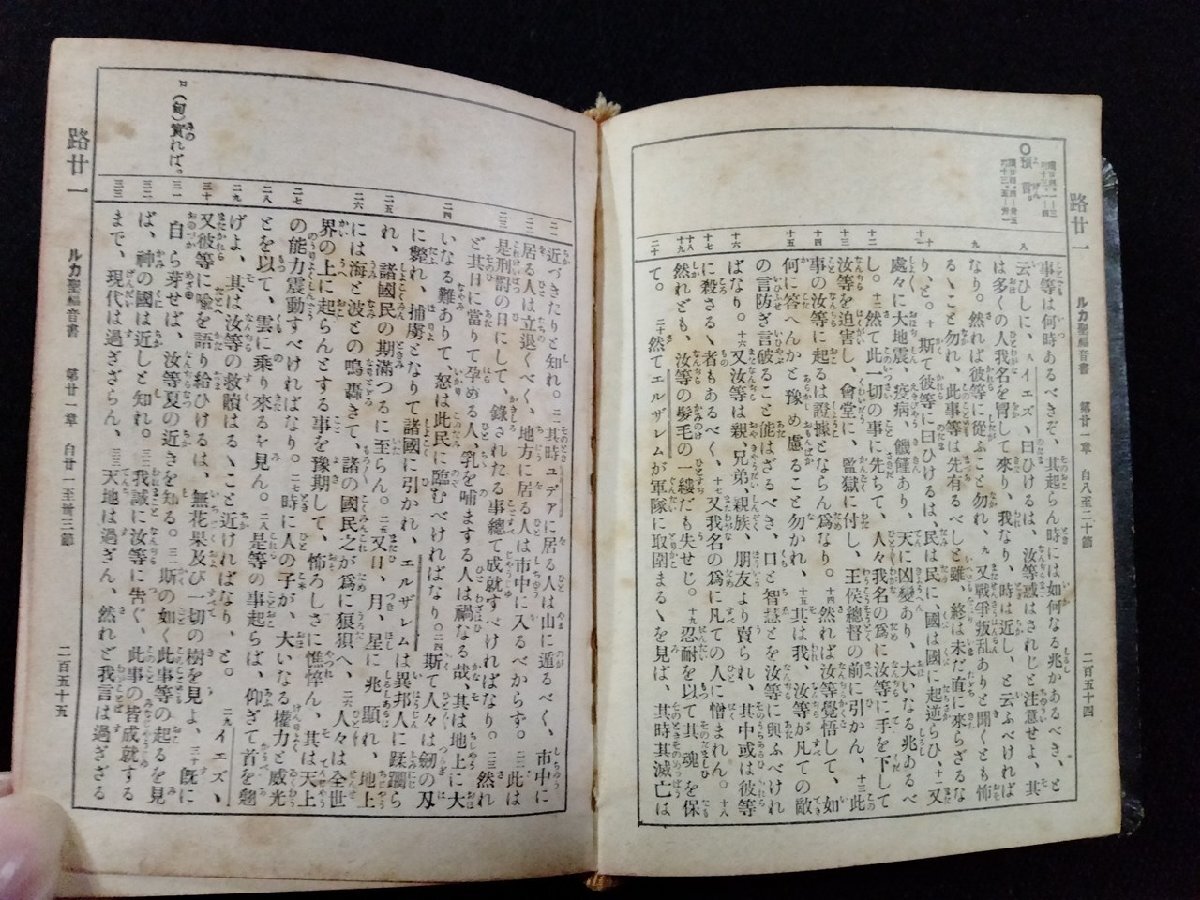 路廿一
ルカ聖福音書
第廿一章
自八至二十節
二百五十四
預言。
八
九
十
十一
十二
十三
十四
十五
十六
十七
十八
十九
二十
事等は何時あるべきぞ、其起らん時には如何なる兆かあるべき、と
云ひしに、八イエズ、曰ひけるは、汝等或はされじと注意せよ、其
は多くの人我名を冒して來り、我なり、時は近し、と云ふべければ
なり。然れば彼等に從ふこと勿れ、九又戰爭叛乱ありと聞くとも怖
るゝこと勿れ、此事等は先有るべしと雖、終は未だ直に來らざるな
りと。十斯て彼等に曰ひけるは、民は民に、國は國に起逆らひ、十一又
處々に大地震、疫病、饑饉あり、天に凶變あり、大いなる兆あるべ
し。十二然て此一切の事に先ちて、人々我名の爲に汝等に手を下して
汝等を迫害し、會堂に、監獄に付し、王侯總督の前に引かん、十三此
事の汝等に起るは證據とならん爲なり。十四然れば汝等覺悟して、如
何に答へんかと豫め慮ること勿かれ、十五其は我、汝等が凡ての敵
の言防ぎ言破ること能はざるべき、口と智慧とを汝等に與ふべけれ
ばなり。十六又汝等は親、兄弟、親族、朋友より賣られ、其中或は彼等
に殺さるゝ者もあるべく、十七又我名の爲に凡ての人に憎まれん。十八
然れども、汝等の髮毛の一縷だも失せじ。十九忍耐を以て其魂を保
て。二十然てエルザレムが軍隊に取圍まるゝを見ば、其時其滅亡は
路廿一
ルカ聖福音書
第廿一章
自廿一至卅三節
二百五十五
ロ(旬)實れば。
二一
二二
二三
二四
二五
二六
二七
二八
二九
三十
三一
三二
三三
近づきたりと知れ。二一其時ユデアに居る人は山に遁るべく、市中に
居る人は立退くべく、地方に居る人は市中に入るべからず。二二此は
是刑罰の日にして、錄されたる事總て成就すべければなり。二三然れ
ど其日に當りて孕める人、乳を哺まする人は禍なる哉、其は地上に大
いなる難ありて、怒は此民に臨むべければなり。二四斯て人々は劒の刃
に斃れ、捕虜となりて諸國に引かれ、エルザレムは異邦人に蹂躙ら
れ、諸國民の期滿つるに至らん。二五又日、月、星に兆顯れ、地上
には海と波との鳴轟きて、諸の國民之が爲に狼狽へ、二六人々は全世
界の上に起らんとする事を豫期して、怖ろしさに憔悴ん、其は天上
の能力震動すべければなり。二七時に人の子が大いなる權力と威光
とを以て、雲に乘り來るを見ん。二八是等の事起らば、仰ぎて首を翹
げよ、其は汝等の救贖はるゝこと近ければなり、と。二九イエズ、
又彼等に喩を語り給ひけるは、無花果及び一切の樹を見よ、三十既に
自ら芽せば、汝等夏の近きを知る。三一斯の如く此事等の起るを見
ば、神の國は近しと知れ。三二我誠に汝等に告ぐ、此事の皆成就する
まで、現代は過ぎざらん、三三天地は過ぎん、然れど我言は過ぎざる